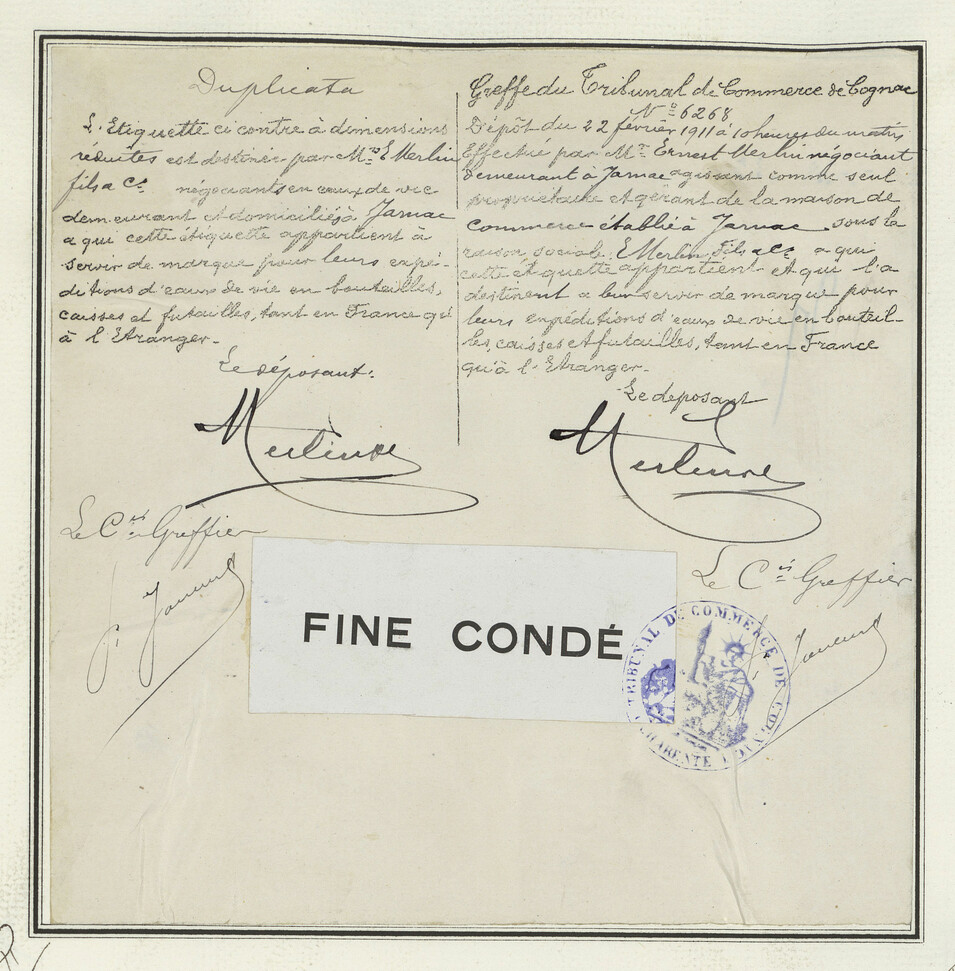 Duplicata
L'Etiquette ci contre à dimensions
réduites est destinée par Mrs E Merlin
fils & Cie négociants en eaux de vie
demeurant et domiciliés à Jarnac
a qui cette étiquette appartient à
servir de marque pour leurs expé-
ditions d'eaux de vie en bouteilles,
caisses et futailles, tant en France qu'
à l'Etranger.
Le déposant:
Le Cis Greffier
Greffe du Tribunal de Commerce de Cognac
N° 6268
Dépôt du 22 février 1911 à 10 heures du matin
Effectué par Mr Ernest Merlin négociant
demeurant à Jarnac agissant comme seul
propriétaire et gérant de la maison de
commerce établie à Jarnac sous la
raison sociale E Merlin Fils & Cie a qui
cette etiquette appartient et qui l'a
destinent a leur servir de marque pour
leurs expéditions d'eaux de vie en bouteil-
les, caisses et futailles, tant en France
qu'à l'Etranger.
Le deposant
Le Cis Greffier
FINE CONDÉ
TRIBUNAL DE COMMERCE DE COGNAC
CHARENTE